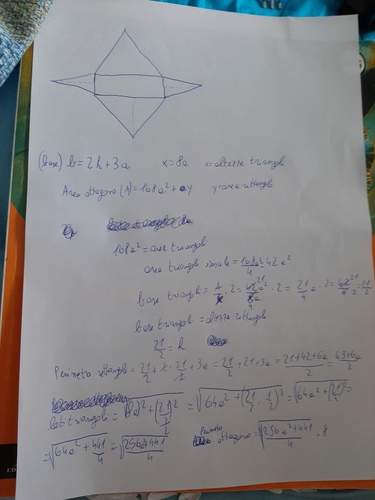 (base) b = 2h + 3a    x = 8a    x = altezze triangoli
Area ottagono (A) = 168a² + y    y = area rettangolo
168a² = aree triangoli
area triangolo = 168a²/4 42a²
base triangolo = A/x · 2 = 42a²/8a · 2 = 21/4 a · 2 = 42²¹/4 = 21/2
base triangolo = altezza rettangolo
21/2 = h
Perimetro rettangolo = 21/2 + 2 · 21/2 + 3a = 21/2 + 21 + 3a = 21+42+6a/2 = 63+6a/2
lati triangolo = √(8a)² + (21/2/2)² = √64a² + (21/2 · 1/2)² = √64a² + (21/4)² =
= √64a² + 441/4 = √256a² + 441/4
Perimetro ottagono = √256a² + 441/4 · 8